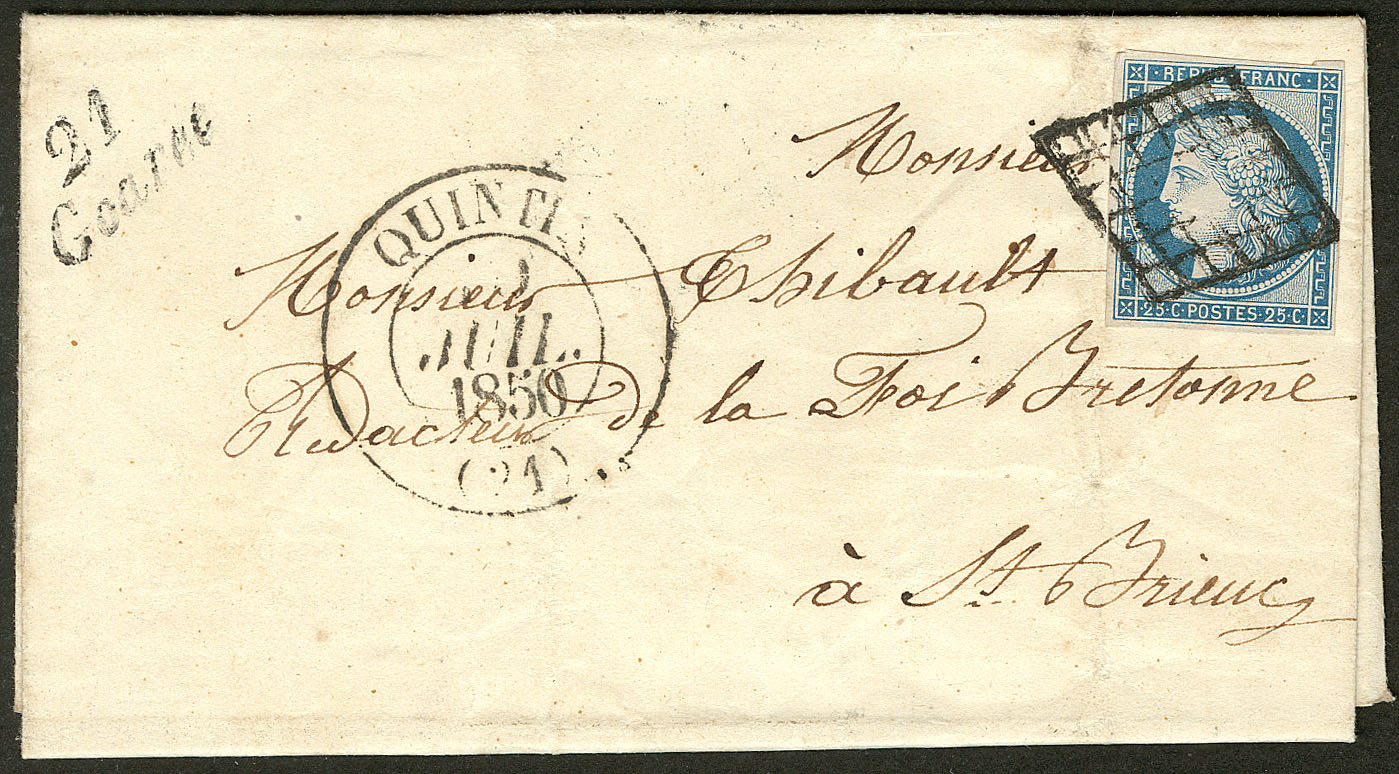 21
Goarec
REPUB. FRANC.
25 · C · POSTES · 25 · C ·
QUINTIN
JUIL.
1850
(21)
Monsieur
Monsieur Thibault
Rédacteur de la Foi Bretonne
à St. Brieuc